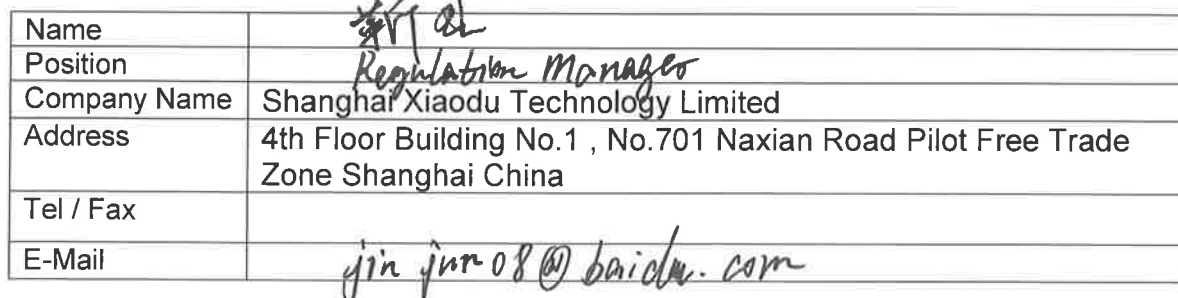 Name
Position Regulation Manager
Company Name Shanghai Xiaodu Technology Limited
Address 4th Floor Building No.1 , No.701 Naxian Road Pilot Free Trade
Zone Shanghai China
Tel / Fax
E-Mail jinjun08@baidu.com